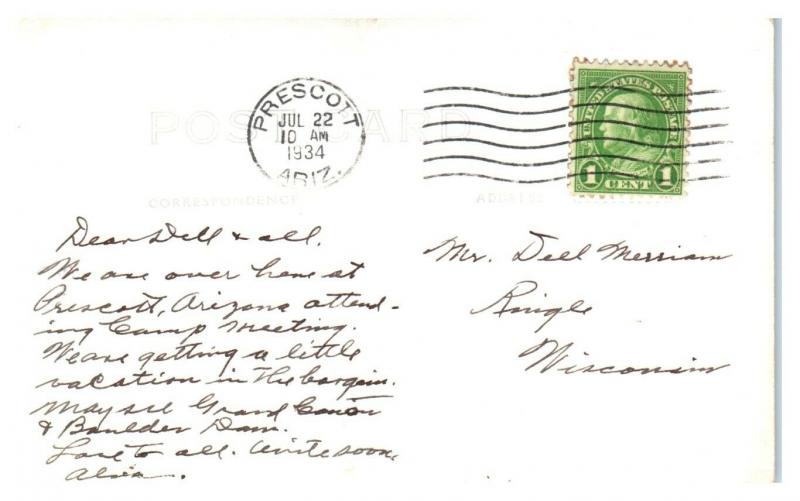 POST CARD
PRESCOTT
JUL 22
10 AM
1934
ARIZ.
UNITED STATES POSTAGE
1 CENT 1
CORRESPONDENCE
ADDRESS
Dear Dell & all.
We are over here at
Prescott, Arizona attend-
ing Camp Meeting.
We are getting a little
vacation in the bargain.
May see Grand Canon
& Boulder Dam.
Love to all. Write soon.
Mr. Dell Merriam
Ringle
Wisconsin